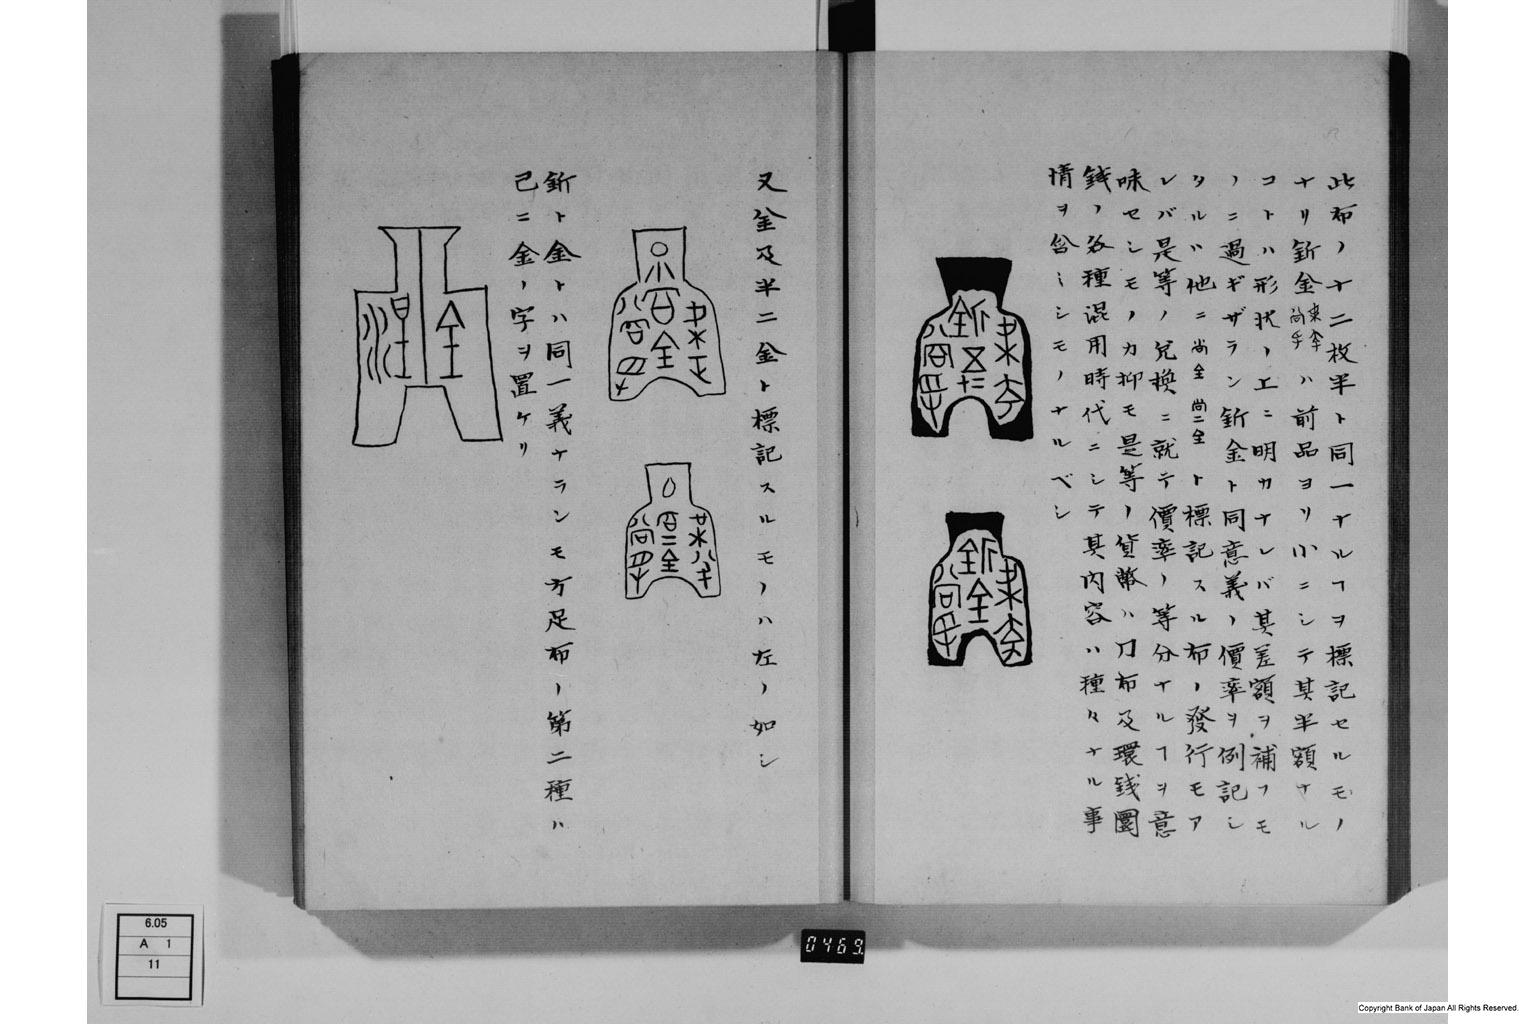 此布ノ十二枚半ト同一ナルヿヲ標記セルモノ
ナリ釿金ハ前品ヨリ小ニシテ其半額ナル
コトハ形状ノ上ニ明カナレバ其差額ヲ補フモ
ノニ過ギザラン釿金ト同意義ノ價率ヲ例記シ
タルハ他ニ尚全尚二全ト標記スル布ノ發行モア
レバ是等ノ兌換ニ就テ價率ノ等分ナルヿヲ意
味セシモノカ抑モ是等ノ貨幣ハ刀布及環錢圜
錢ノ各種混用時代ニシテ其内容ハ種々ナル事
情ヲ含ミシモノナルベシ
又金及半二金ト標記スルモノハ左ノ如シ
釿ト金トハ同一義ナランモ方足布ノ第二種ハ
己ニ金ノ字ヲ置ケリ
6.05
A 1
11
0469
Copyright Bank of Japan All Rights Reserved.